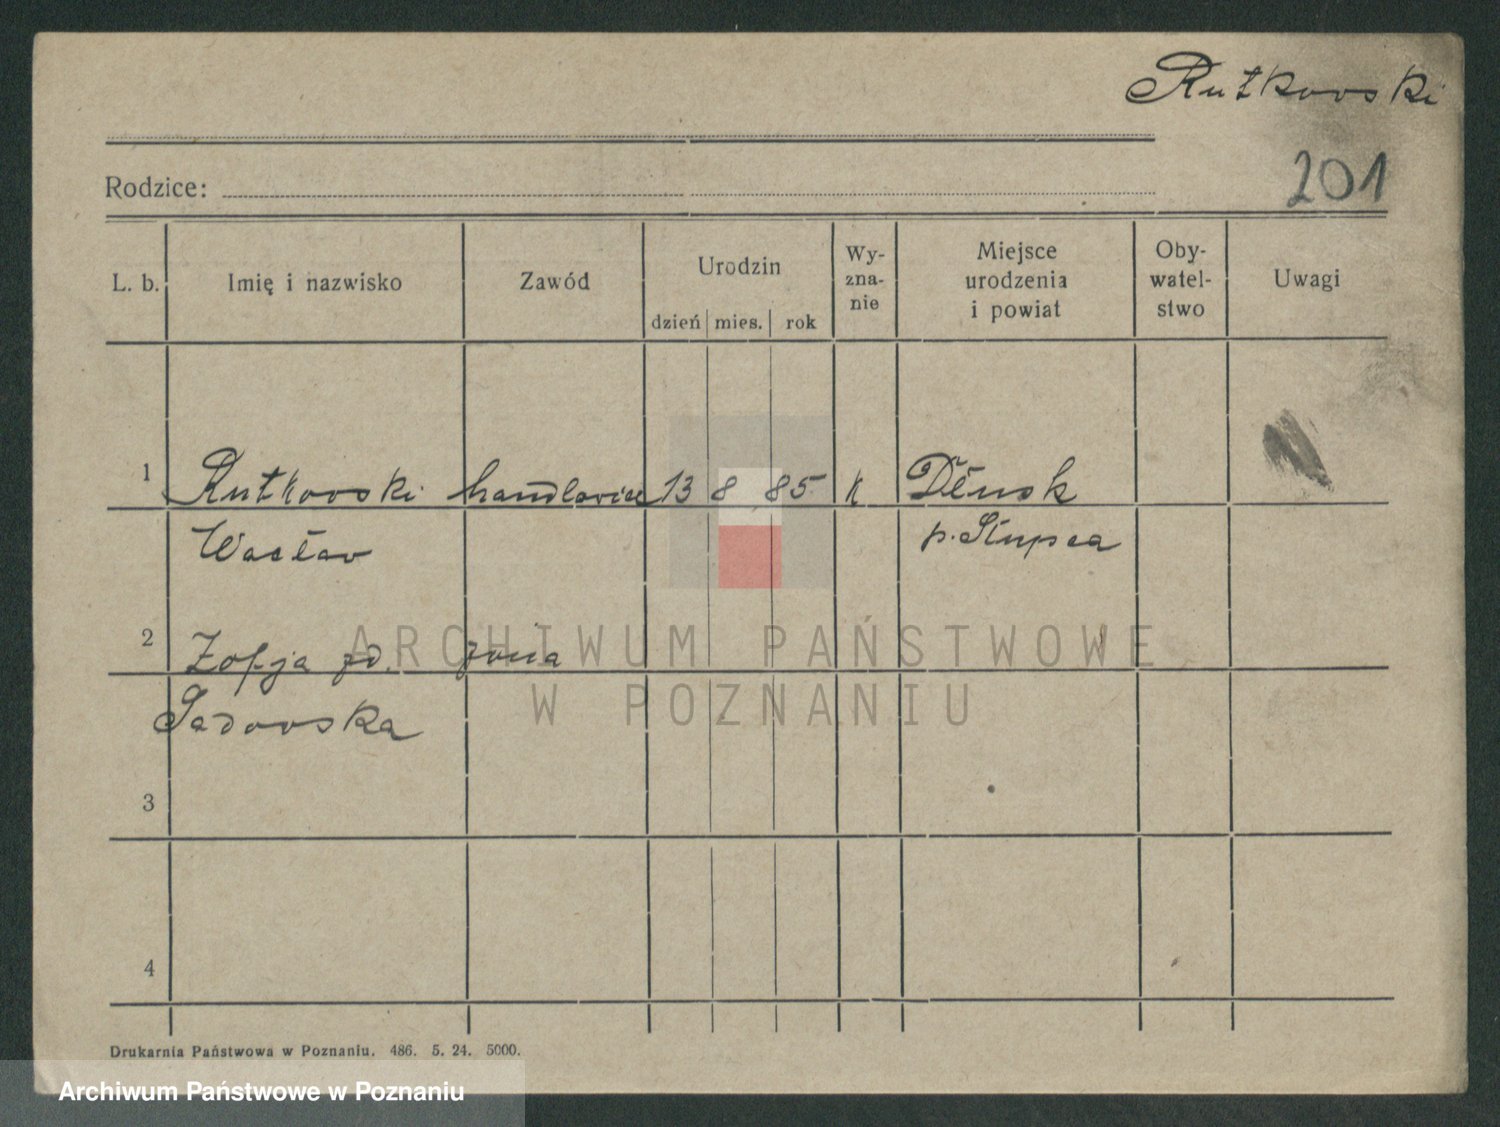 Rutkowski
Rodzice:
201
L. b. Imię i nazwisko Zawód Urodzin dzień mies. rok Wy-zna-nie Miejsce urodzenia i powiat Oby-watel-stwo Uwagi
1 Rutkowski handlowiec 13 8 85 K
Wacław p. Słupca
2 Zofja zd. żona
Sadowska
3
4
Drukarnia Państwowa w Poznaniu. 486. 5. 24. 5000.
ARCHIWUM PAŃSTWOWE
W POZNANIU
Archiwum Państwowe w Poznaniu